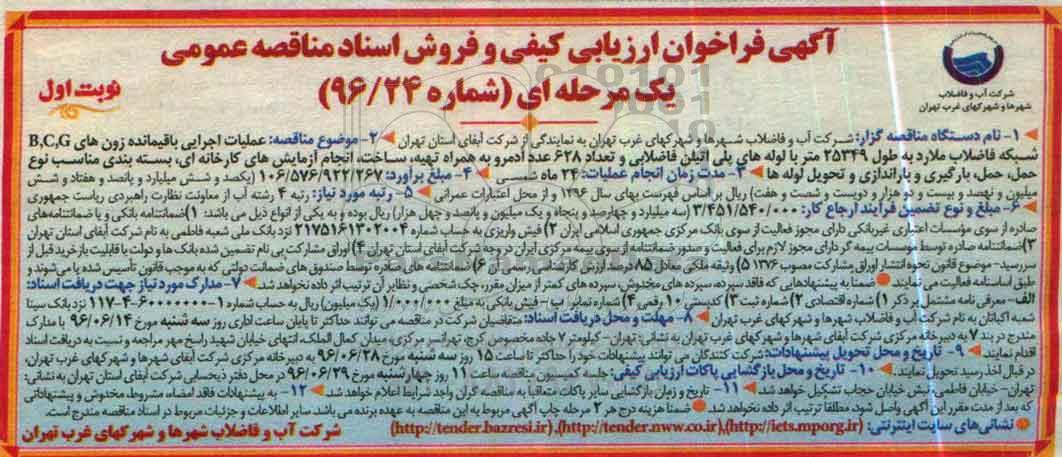 آگهی فراخوان ارزیابی کیفی و فروش اسناد مناقصه عمومی
یک مرحله ای (شماره ۹۶/۲۴)
نوبت اول
شرکت آب و فاضلاب
شهرها و شهرکهای غرب تهران
۱- نام دستگاه مناقصه گزار: شرکت آب و فاضلاب شهرها و شهرکهای غرب تهران به نمایندگی از شرکت آبفای استان تهران ۲- موضوع مناقصه: عملیات اجرایی باقیمانده زون های B,C,G
شبکه فاضلاب ملارد به طول ۲۵۳۴۹ متر با لوله های پلی اتیلن فاضلابی و تعداد ۶۲۸ عدد آدمرو به همراه تهیه، ساخت، انجام آزمایش های کارخانه ای، بسته بندی مناسب نوع
حمل، حمل، بارگیری و باراندازی و تحویل لوله ها ۳- مدت زمان انجام عملیات: ۲۴ ماه شمسی ۴- مبلغ برآورد: ۱۰۶/۵۷۶/۹۲۲/۲۶۷ (یکصد و شش میلیارد و پانصد و هفتاد و شش
میلیون و نهصد و بیست و دو هزار و دویست و شصت و هفت) ریال بر اساس فهرست بهای سال ۱۳۹۶ و از محل اعتبارات عمرانی ۵- رتبه مورد نیاز: رتبه ۴ رشته آب از معاونت نظارت راهبردی ریاست جمهوری
۶- مبلغ و نوع تضمین فرآیند ارجاع کار: ۳/۴۵۱/۵۴۰/۰۰۰ (سه میلیارد و چهارصد و پنجاه و یک میلیون و پانصد و چهل هزار) ریال بوده و به یکی از انواع ذیل می باشد: ۱) ضمانتنامه بانکی و یا ضمانتنامه های
صادره از سوی مؤسسات اعتباری غیربانکی دارای مجوز فعالیت از سوی بانک مرکزی جمهوری اسلامی ایران ۲) فیش واریزی به حساب شماره ۲۱۷۵۱۶۱۳۰۲۰۰۴ نزد بانک ملی شعبه فاطمی به نام شرکت آبفای استان تهران
۳) ضمانتنامه صادره توسط مؤسسات بیمه گر دارای مجوز لازم برای فعالیت و صدور ضمانتنامه از سوی بیمه مرکزی ایران در وجه شرکت آبفای استان تهران ۴) اوراق مشارکت بی نام تضمین شده بانک ها و دولت با قابلیت بازخرید قبل از
سررسید- موضوع قانون نحوه انتشار اوراق مشارکت مصوب ۱۳۷۶ ۵) وثیقه ملکی معادل ۸۵ درصد ارزش کارشناسی رسمی آن ۶) ضمانتنامه های صادره توسط صندوق های ضمانت دولتی که به موجب قانون تأسیس شده یا می شوند و
طبق اساسنامه فعالیت می نمایند ضمنا به پیشنهادهایی که فاقد سپرده، سپرده های مخدوش، سپرده های کمتر از میزان مقرر، چک شخصی و نظایر آن ترتیب اثر داده نخواهد شد. ۷- مدارک مورد نیاز جهت دریافت اسناد:
الف- معرفی نامه مشتمل بر ذکر ۱) شماره اقتصادی ۲) شماره ثبت ۳) کدپستی ۱۰ رقمی ۴) شماره نمابر ب- فیش بانکی به مبلغ ۱/۰۰۰/۰۰۰ (یک میلیون) ریال به حساب شماره ۱-۶۰۰۰۰۰۰۰-۴-۱۱۷ نزد بانک سینا
شعبه اکباتان به نام شرکت آب و فاضلاب شهرها و شهرکهای غرب تهران ۸- مهلت و محل دریافت اسناد: متقاضیان شرکت در مناقصه می توانند حداکثر تا پایان ساعت اداری روز سه شنبه مورخ ۹۶/۰۶/۱۴ با مدارک
بند ۷ به دبیرخانه مرکزی شرکت آبفای شهرها و شهرکهای غرب تهران به نشانی: تهران- کیلومتر ۷ جاده مخصوص کرج، تهرانسر مرکزی، میدان کمال الملک، انتهای خیابان شهید راسخ مهر مراجعه و نسبت به دریافت اسناد
اقدام نمایند. ۹- تاریخ و محل تحویل پیشنهادات: شرکت کنندگان می توانند پیشنهادات خود را حداکثر تا ساعت ۱۵ روز سه شنبه مورخ ۹۶/۰۶/۲۸ به دبیرخانه مرکزی شرکت آبفای شهرها و شهرکهای غرب تهران،
در قبال اخذ رسید تحویل نمایند. ۱۰- تاریخ و محل بازگشایی پاکات ارزیابی کیفی: جلسه کمیسیون مناقصه ساعت ۱۱ روز چهارشنبه مورخ ۹۶/۰۶/۲۹ در محل دفتر ذیحسابی شرکت آبفای استان تهران به نشانی:
تهران- خیابان فاطمی- نبش خیابان حجاب تشکیل خواهد شد. ۱۱- تاریخ و زمان بازگشایی سایر پاکات متعاقبا به مناقصه گران واجد شرایط اعلام خواهد شد. ۱۲- به پیشنهادات فاقد امضاء، مشروط، مخدوش و پیشنهاداتی
که بعد از مدت مقرر این آگهی واصل شود، مطلقا ترتیب اثر داده نخواهد شد. ضمنا هزینه درج هر ۲ مرحله چاپ آگهی مربوط به این مناقصه به عهده برنده می باشد سایر اطلاعات و جزئیات مربوط در اسناد مناقصه مندرج است.
نشانی های سایت اینترنتی: (http://iets.mporg.ir)، (http://tender.nww.co.ir)، (http://tender.bazresi.ir) شرکت آب و فاضلاب شهرها و شهرکهای غرب تهران